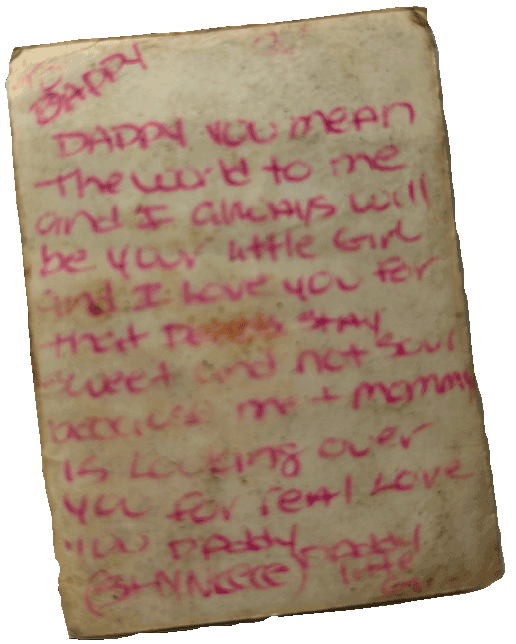 DADDY
DADDY YOU mean
the world to me
and I always will
be your little Girl
and I Love you for
that STAY
sweet and not sour
because me + mommy
is Looking over
you for real Love
you Daddy
DADDY
little
Girl